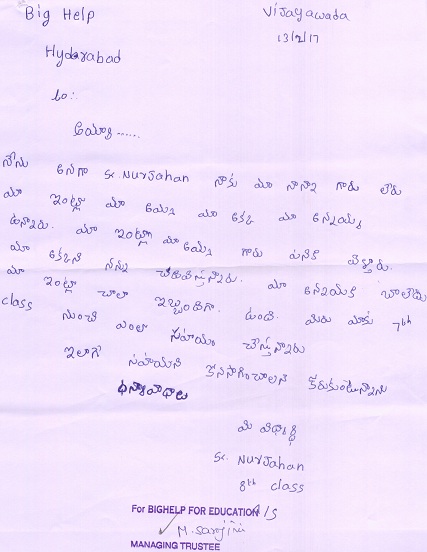 Big Help
Vijayawada
13/2/17
Hyderabad
to:
అయ్యా......
నేను అనగా Sk. NurJahan నాకు మా నాన్న గారు లేరు
మా ఇంట్లో మా అమ్మ మా అక్క మా అన్నయ్య
ఉన్నారు. మా ఇంట్లో మా అమ్మ గారు పనికి వెళ్తారు.
మా అక్కని నన్ను చదివిస్తున్నారు. మా అన్నయకి బాలేదు
మా ఇంట్లో చాలా ఇబ్బందిగా ఉంది. మీరు మాకు 7th
class నుంచి ఎంతో సహాయం చేస్తున్నారు
ఇలాగే సహాయని కొనసాగించాలని కోరుకుంటున్నాను
ధన్యావాధాలు
మి విధ్యార్థి
Sk. NurJahan
8th class
For BIGHELP FOR EDUCATION
M. Sarojini
MANAGING TRUSTEE